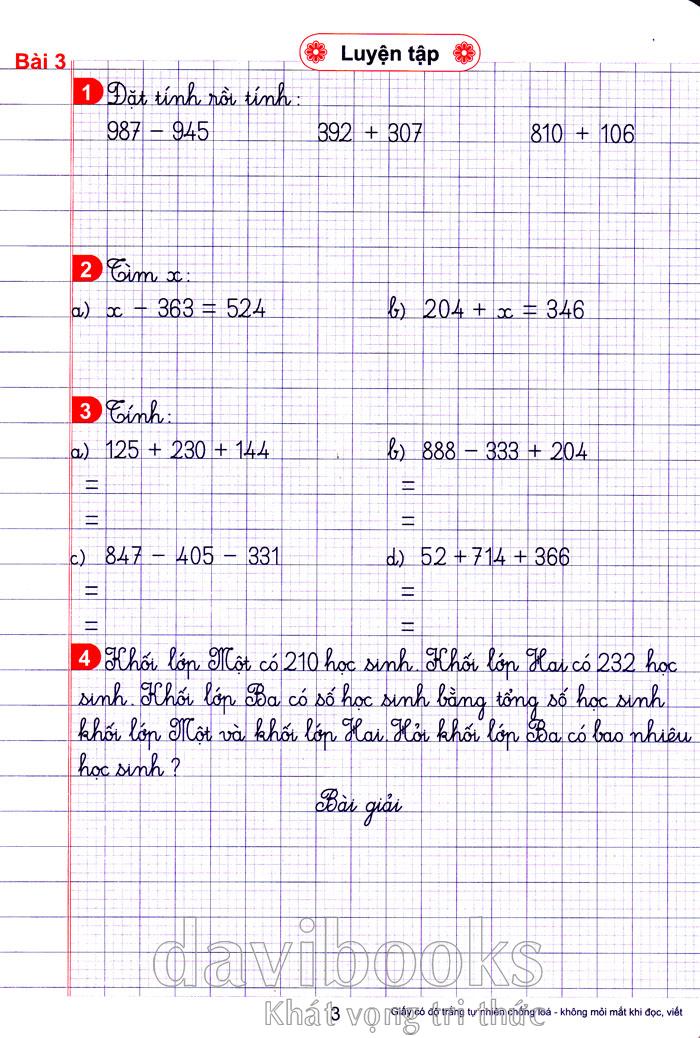 Luyện tập
Bài 3
1 Đặt tính rồi tính:
987 − 945 392 + 307 810 + 106
2 Tìm x:
a) x − 363 = 524 b) 204 + x = 346
3 Tính:
a) 125 + 230 + 144 b) 888 − 333 + 204
= =
= =
c) 847 − 405 − 331 d) 52 + 714 + 366
= =
= =
4 Khối lớp Một có 210 học sinh. Khối lớp Hai có 232 học
sinh. Khối lớp Ba có số học sinh bằng tổng số học sinh
khối lớp Một và khối lớp Hai. Hỏi khối lớp Ba có bao nhiêu
học sinh?
Bài giải
davibooks
Khát vọng tri thức
3 Giấy có độ trắng tự nhiên chống loá - không mỏi mắt khi đọc, viết